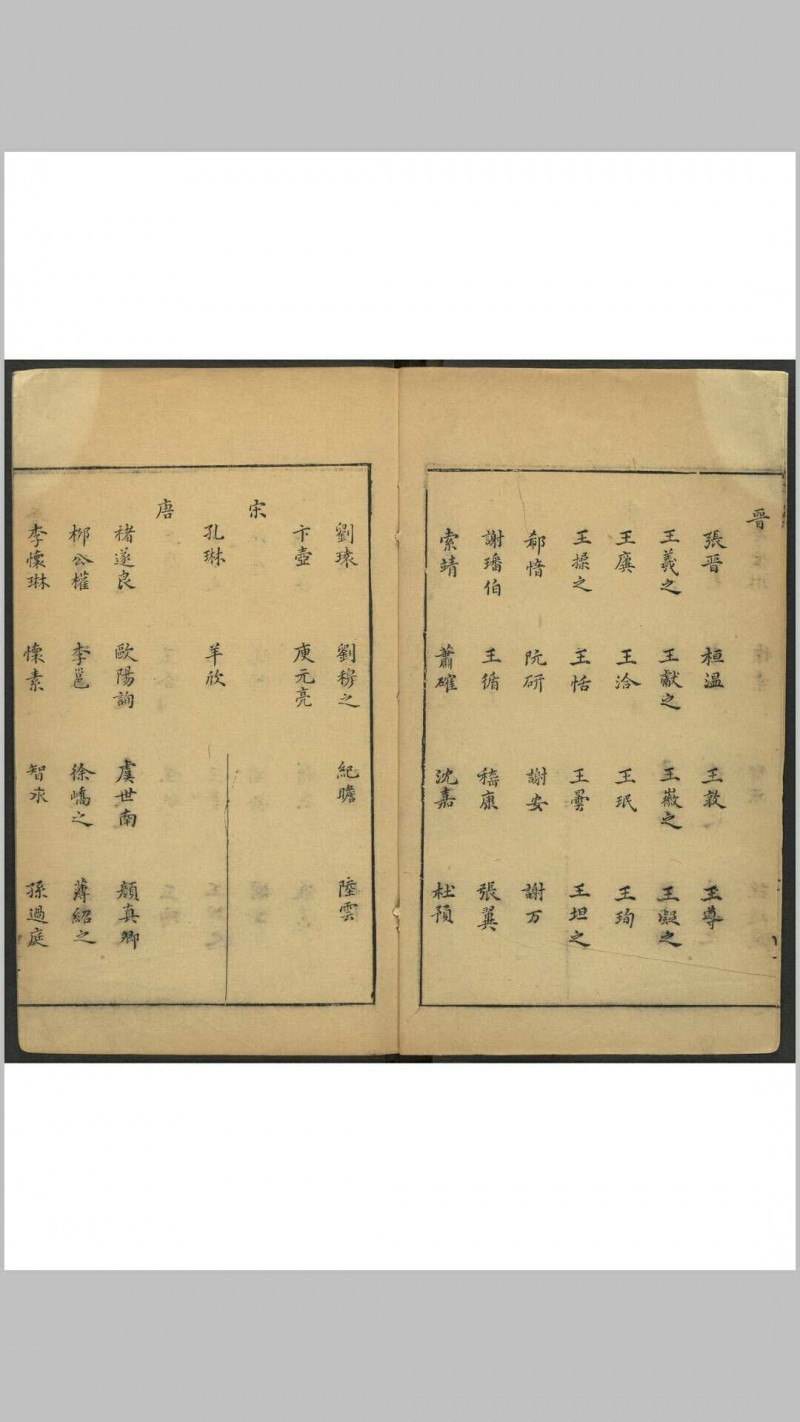 晉
張晋 桓温 王敦 王導
王羲之 王獻之 王薇之 王凝之
王廙 王洽 王珉 王珣
王操之 王恬 王曇 王坦之
郗愔 阮研 謝安 謝万
謝璠伯 王循 嵇康 張翼
索靖 蕭確 沈嘉 杜預
劉瓌 劉穆之 紀瞻 陸雲
卞壺 庾元亮
宋
孔琳 羊欣
唐
褚遂良 歐陽詢 虞世南 顏真卿
栁公權 李邕 徐嶠之 薄紹之
李懷琳 懷素 智永 孫過庭